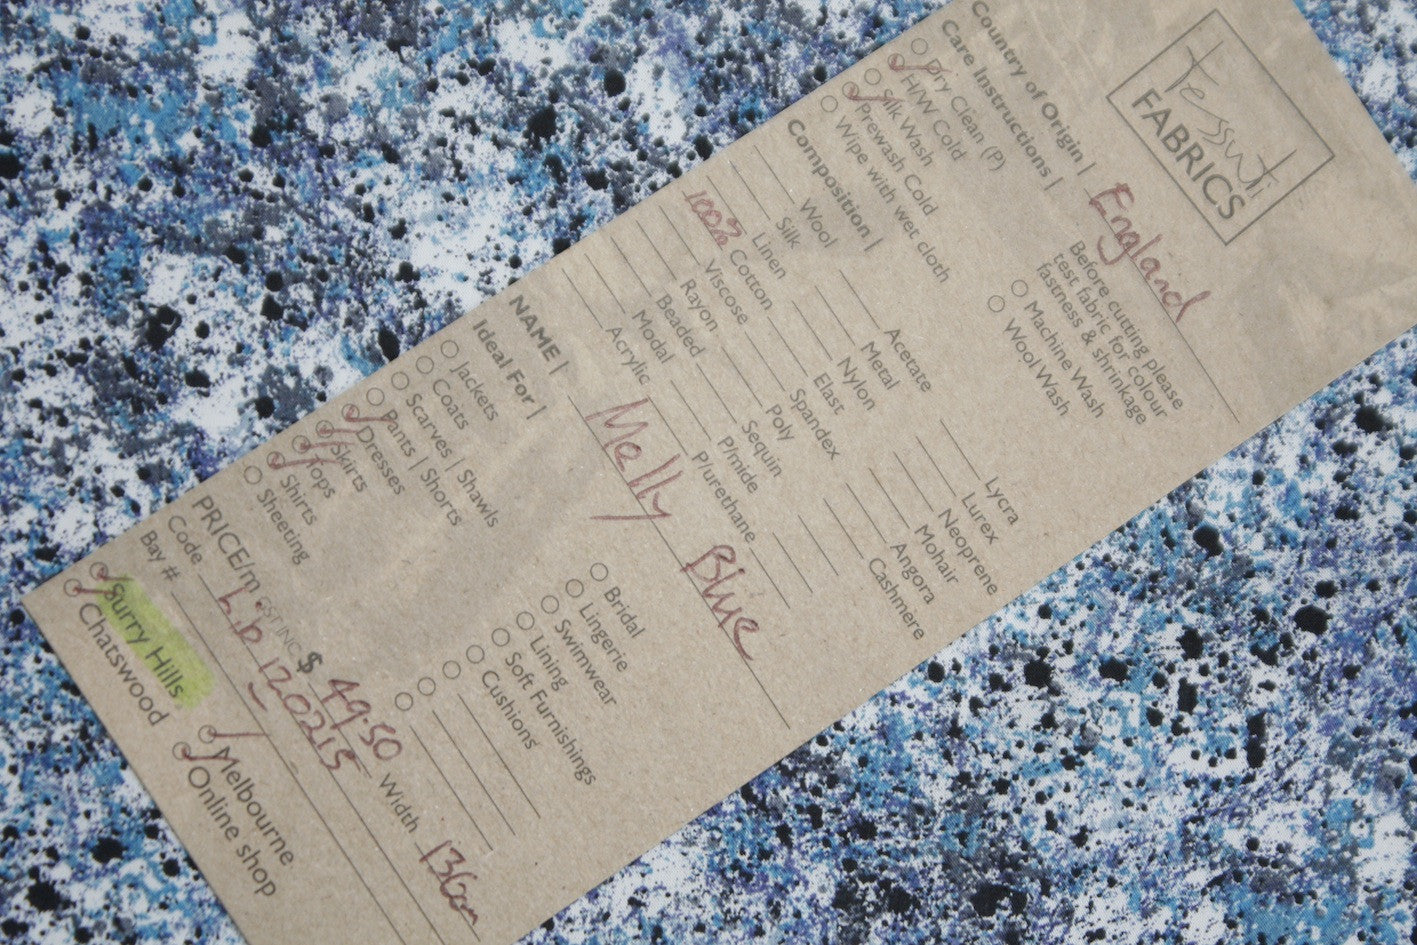 Tessuti
FABRICS
Country of Origin | England
Care Instructions | Before cutting please
test fabric for colour
fastness & shrinkage
Dry Clean (P) Machine Wash
H/W Cold Wool Wash
Silk Wash
Prewash Cold
Wipe with wet cloth
Composition |
Wool Acetate Lycra
Silk Metal Lurex
Linen Nylon Neoprene
100% Cotton Elast Mohair
Viscose Spandex Angora
Rayon Poly Cashmere
Beaded Sequin
Modal P/mide
Acrylic P/urethane
NAME | Melly Blue
Ideal For |
Jackets Bridal
Coats Lingerie
Scarves | Shawls Swimwear
Pants | Shorts Lining
Dresses Soft Furnishings
Skirts Cushions
Tops
Shirts
Sheeting
PRICE/m GST INC $ 49.50 Width 136cm
Code Lib 120215
Bay #
Surry Hills Melbourne
Chatswood Online shop